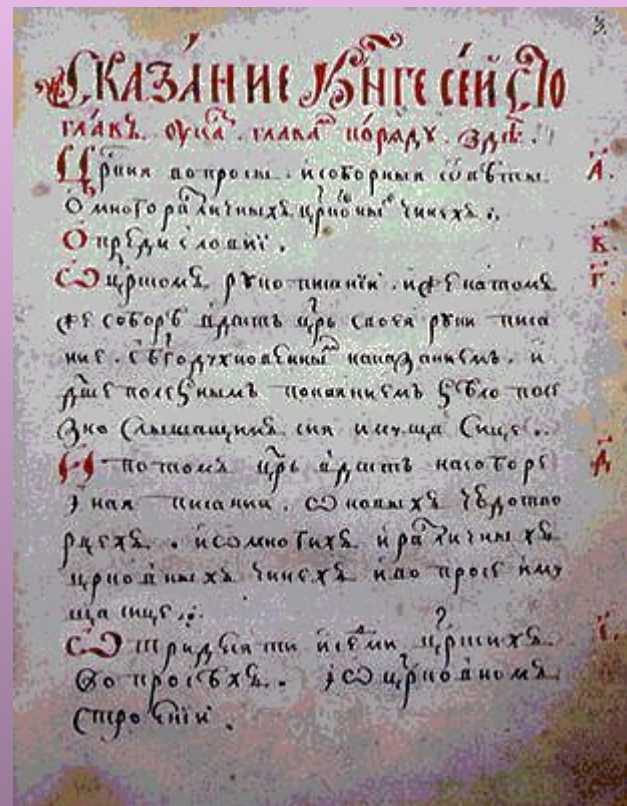 З.
Сказа́ние кни́ге сеи Сто
глакъ. ѹка. глава по́ряду. здѣ.
Црькия вопросы. и соборныя ѿвѣты А҃.
О многоразличныхъ црко́вны чинехъ.
О предисловиї. В҃.
Ѡ црькомъ рукописаниї. иже на томъ Г҃.
же соборѣ вдасть црь своея руки писа
ние. съ бгодухновенны наказаниемъ. и
дше полезнымъ покаяниемъ ѕѣло поле
зно слышащимъ сия имуща сице.
И потомъ црь вдасть на соборе Д҃
иная писания. Ѡ новыхъ чюдотво
рцехъ. и ѡ многихъ и различныхъ
црковныхъ чинехъ и вопросе иму
ща сице.
Ѡ тридесяти и седми црькихъ Е҃.
вопросѣхъ. и ѡ црковномъ
строениї.